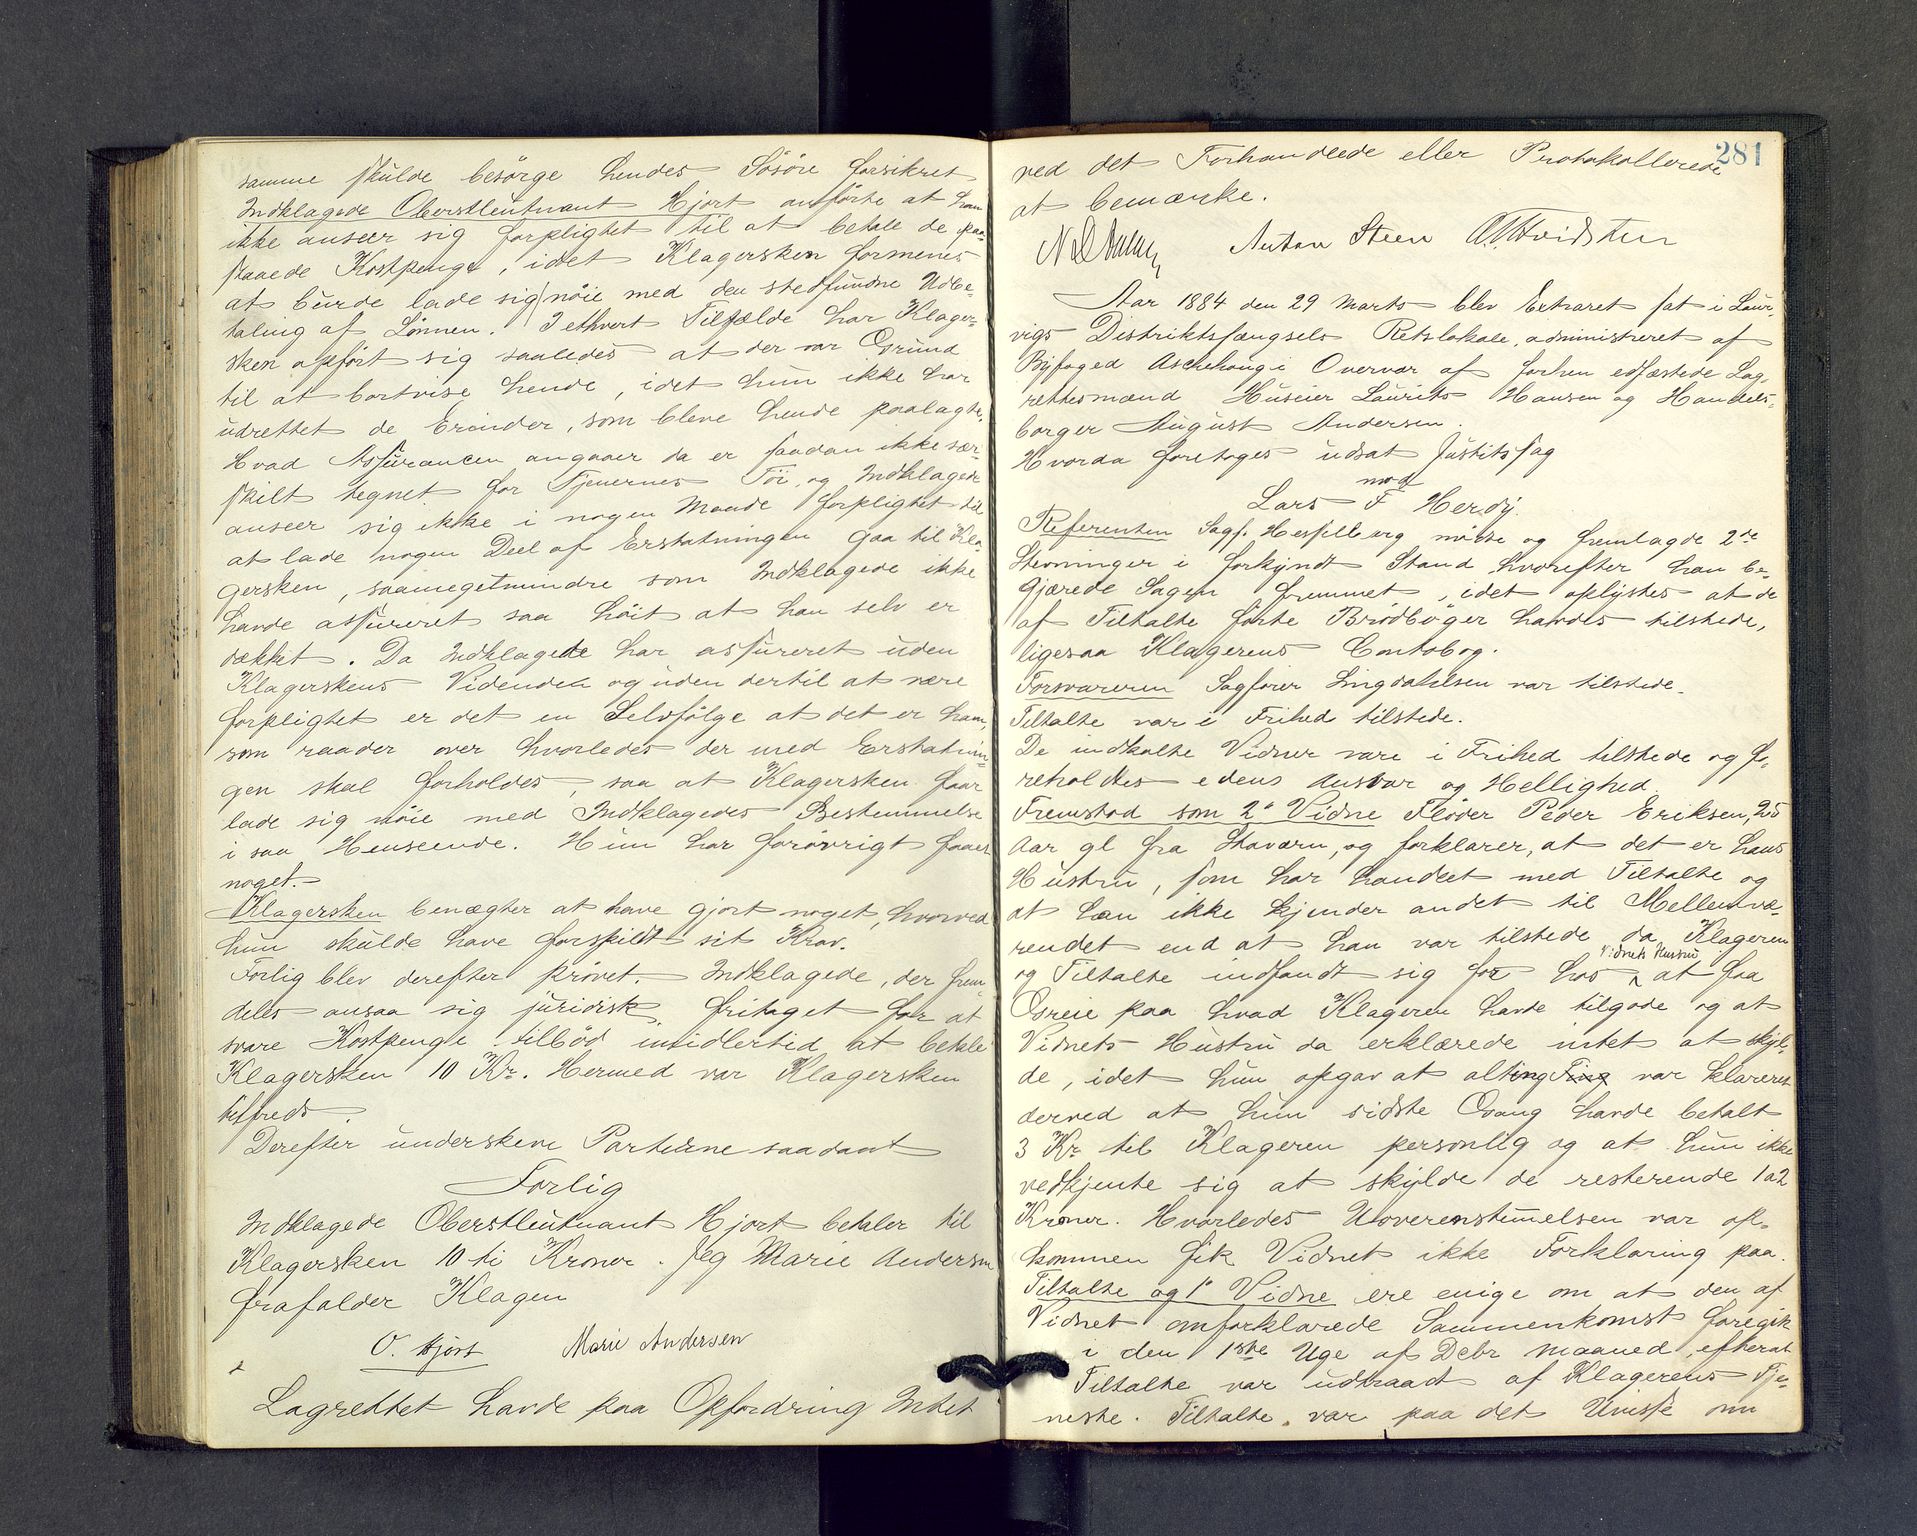 samme skulde besørge hendes Tøsøre forsikret
Indklagede Oberstleutnant Hjort anførte at han
ikke anseer sig forpligtet til at betale de paa-
staaede Kostpenge, idet Klagersken formenes
at burde lade sig nøie med den stedfundne Udbe-
taling af Lønnen. I ethvert Tilfælde har Klager-
sken opført sig saaledes at der var Grund
til at bortvise hende, idet hun ikke har
udrettet de Erinder, som bleve hende paalagte.
Hvad Assurancen angaaer da er saadan ikke sær-
skilt tegnet for Tjenernes Tøi, og Indklagede
anseer sig ikke i nogen Maade forpligtet til
at lade nogen Deel af Erstatningen gaa til Kla-
gersken, saameget mindre som Indklagede ikke
havde assureret saa høit at han selv er
dækket. Da Indklagede har assureret uden
Klagerskens Vidende og uden dertil at være
forpligtet er det en Selvfølge at det er ham,
som raader over hvorledes der med Erstatnin-
gen skal forholdes, saa at Klagersken faar
lade sig nøie med Indklagedes Bestemmelse
i saa Henseende. Hun har forøvrigt faaet
noget.
Klagersken benægter at have gjort noget, hvorved
hun skulde have forspildt sit Krav.
Forlig blev derefter prøvet. Indklagede, der frem-
deles ansaa sig juridisk fritaget for at
svare Kostpenge tilbød imidlertid at betale
Klagersken 10 Kr. Hermed var Klagersken
tilfreds.
Derefter underskrev Parterne saadant
Forlig
Indklagede Oberstleutnant Hjort betaler til
Klagersken 10 ti Kroner. Jeg Marie Andersen
frafalder Klagen
O. Hjort Marie Andersen
Lagrettet havde paa Opfordring Intet
281
ved det Forhandlede eller Protokollerede
at bemærke.
Anton Steen
Aar 1884 den 29 Marts blev Extraret sat i Laur-
vigs Distriktsfængsels Retslokale, administreret af
Byfoged Aschehoug i Overvær af forhen edfæstede Lag-
rettesmænd Huseier Laurits Hansen og Handels-
borger August Andersen.
Hvorda foretoges udsat Justitssag
mod
Lars F Herdy.
Referenten Sagf. Hesselberg mødte og fremlagde 2de
Stevninger i forkyndt Stand hvorefter han be-
gjærede Sagen fremmet, idet oplystes at de
af Tiltalte førte Brødbøger havdes tilstede,
ligesaa Klagerens Contobog.
Forsvareren Sagfører Lingdahlsen var tilstede.
Tiltalte var i Frihed tilstede.
De indkaldte Vidner vare i Frihed tilstede og fo-
reholdtes edens Ansvar og Hellighed.
Fremstod som 2' Vidne Fløder Peder Eriksen, 25
Aar gl fra Staværn, og forklarer, at det er hans
Hustru, som har handlet med Tiltalte og
at han ikke kjender andet til Mellemvæ-
rendet end at han var tilstede da Klageren
og Tiltalte indfandt sig for hos Vidnets Hustru at faa
Greie paa hvad Klageren havde tilgode og at
Vidnets Hustru da erklærede intet at skyl-
de, idet hun opgav at alting Ting var klareret
derved at hun sidste Gang havde betalt
3 Kr til Klageren personlig og at hun ikke
vedkjente sig at skylde de resterende 1 a 2
Kroner. Hvorledes Uoverenstemelsen var op-
kommen fik Vidnet ikke Forklaring paa.
Tiltalte og 1' Vidne ere enige om at den af
Vidnet omforklarede Sammenkomst foregik
i den 1ste Uge af Decbr maaned, efterat
Tiltalte var udtraadt af Klagerens Tje-
neste. Tiltalte var paa det Uvisse om